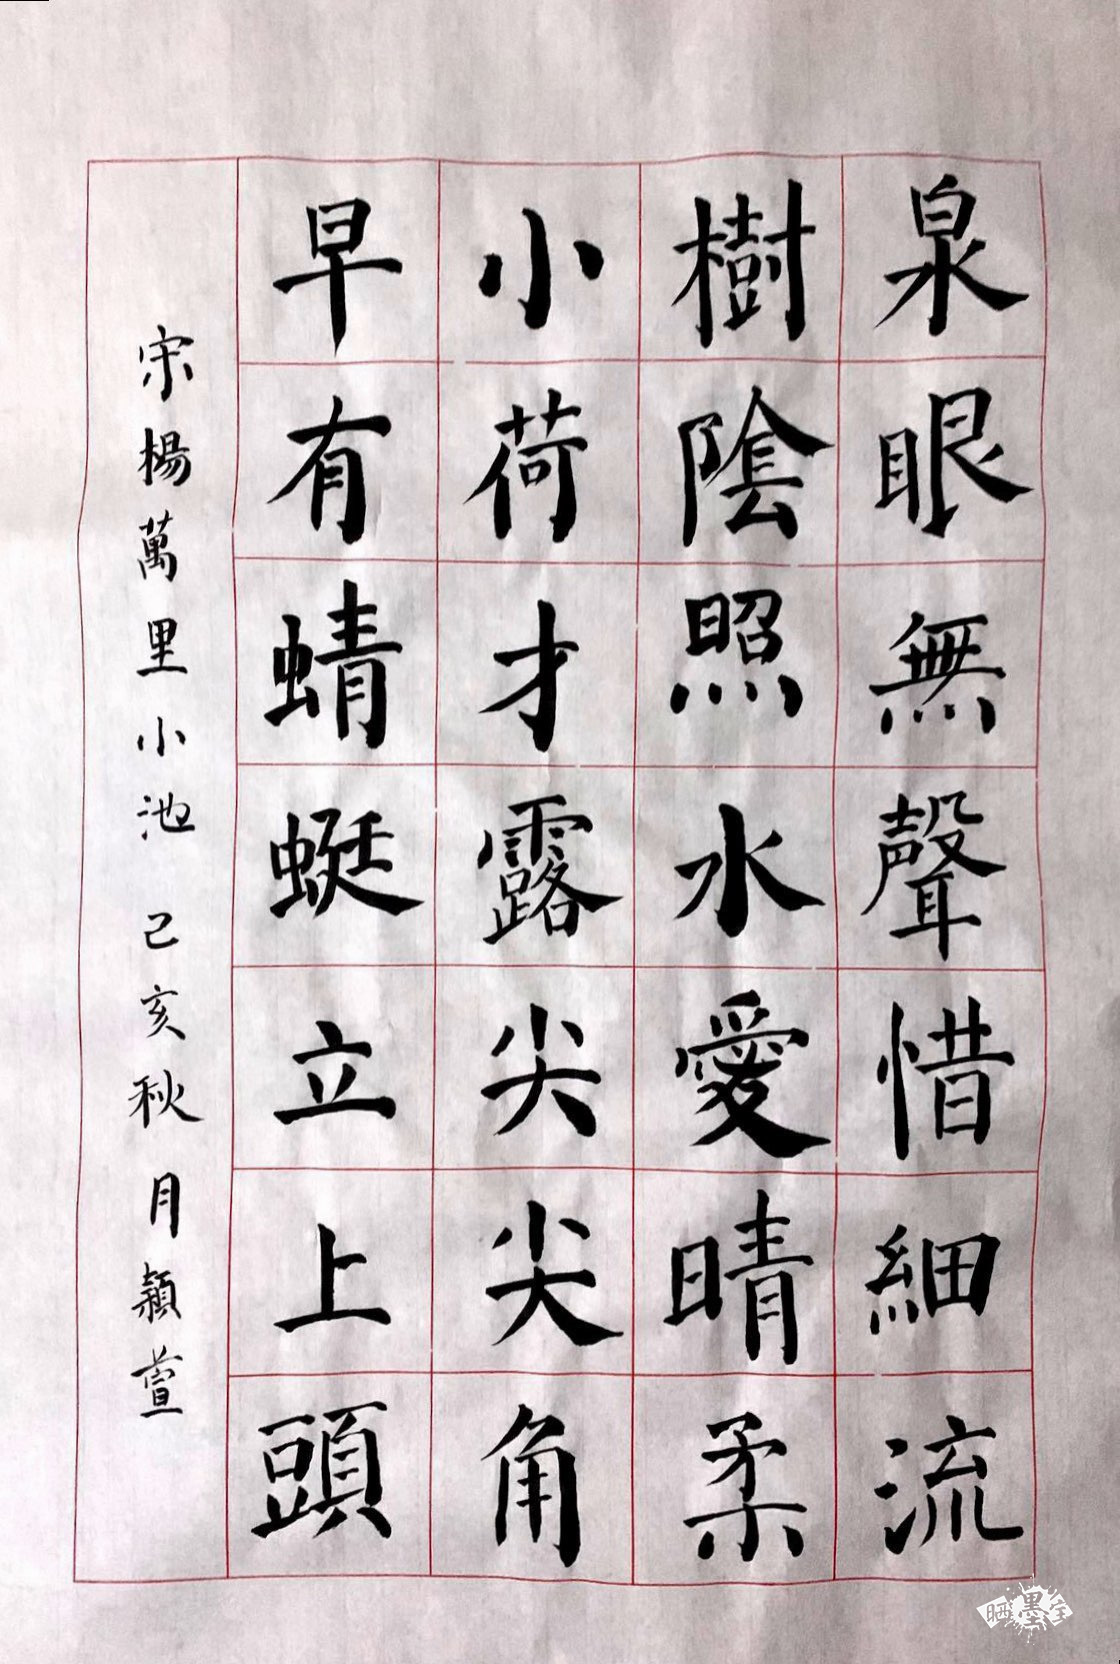 泉眼無聲惜細流
樹陰照水愛晴柔
小荷才露尖尖角
早有蜻蜓立上頭
宋楊萬里小池 己亥秋月穎萱